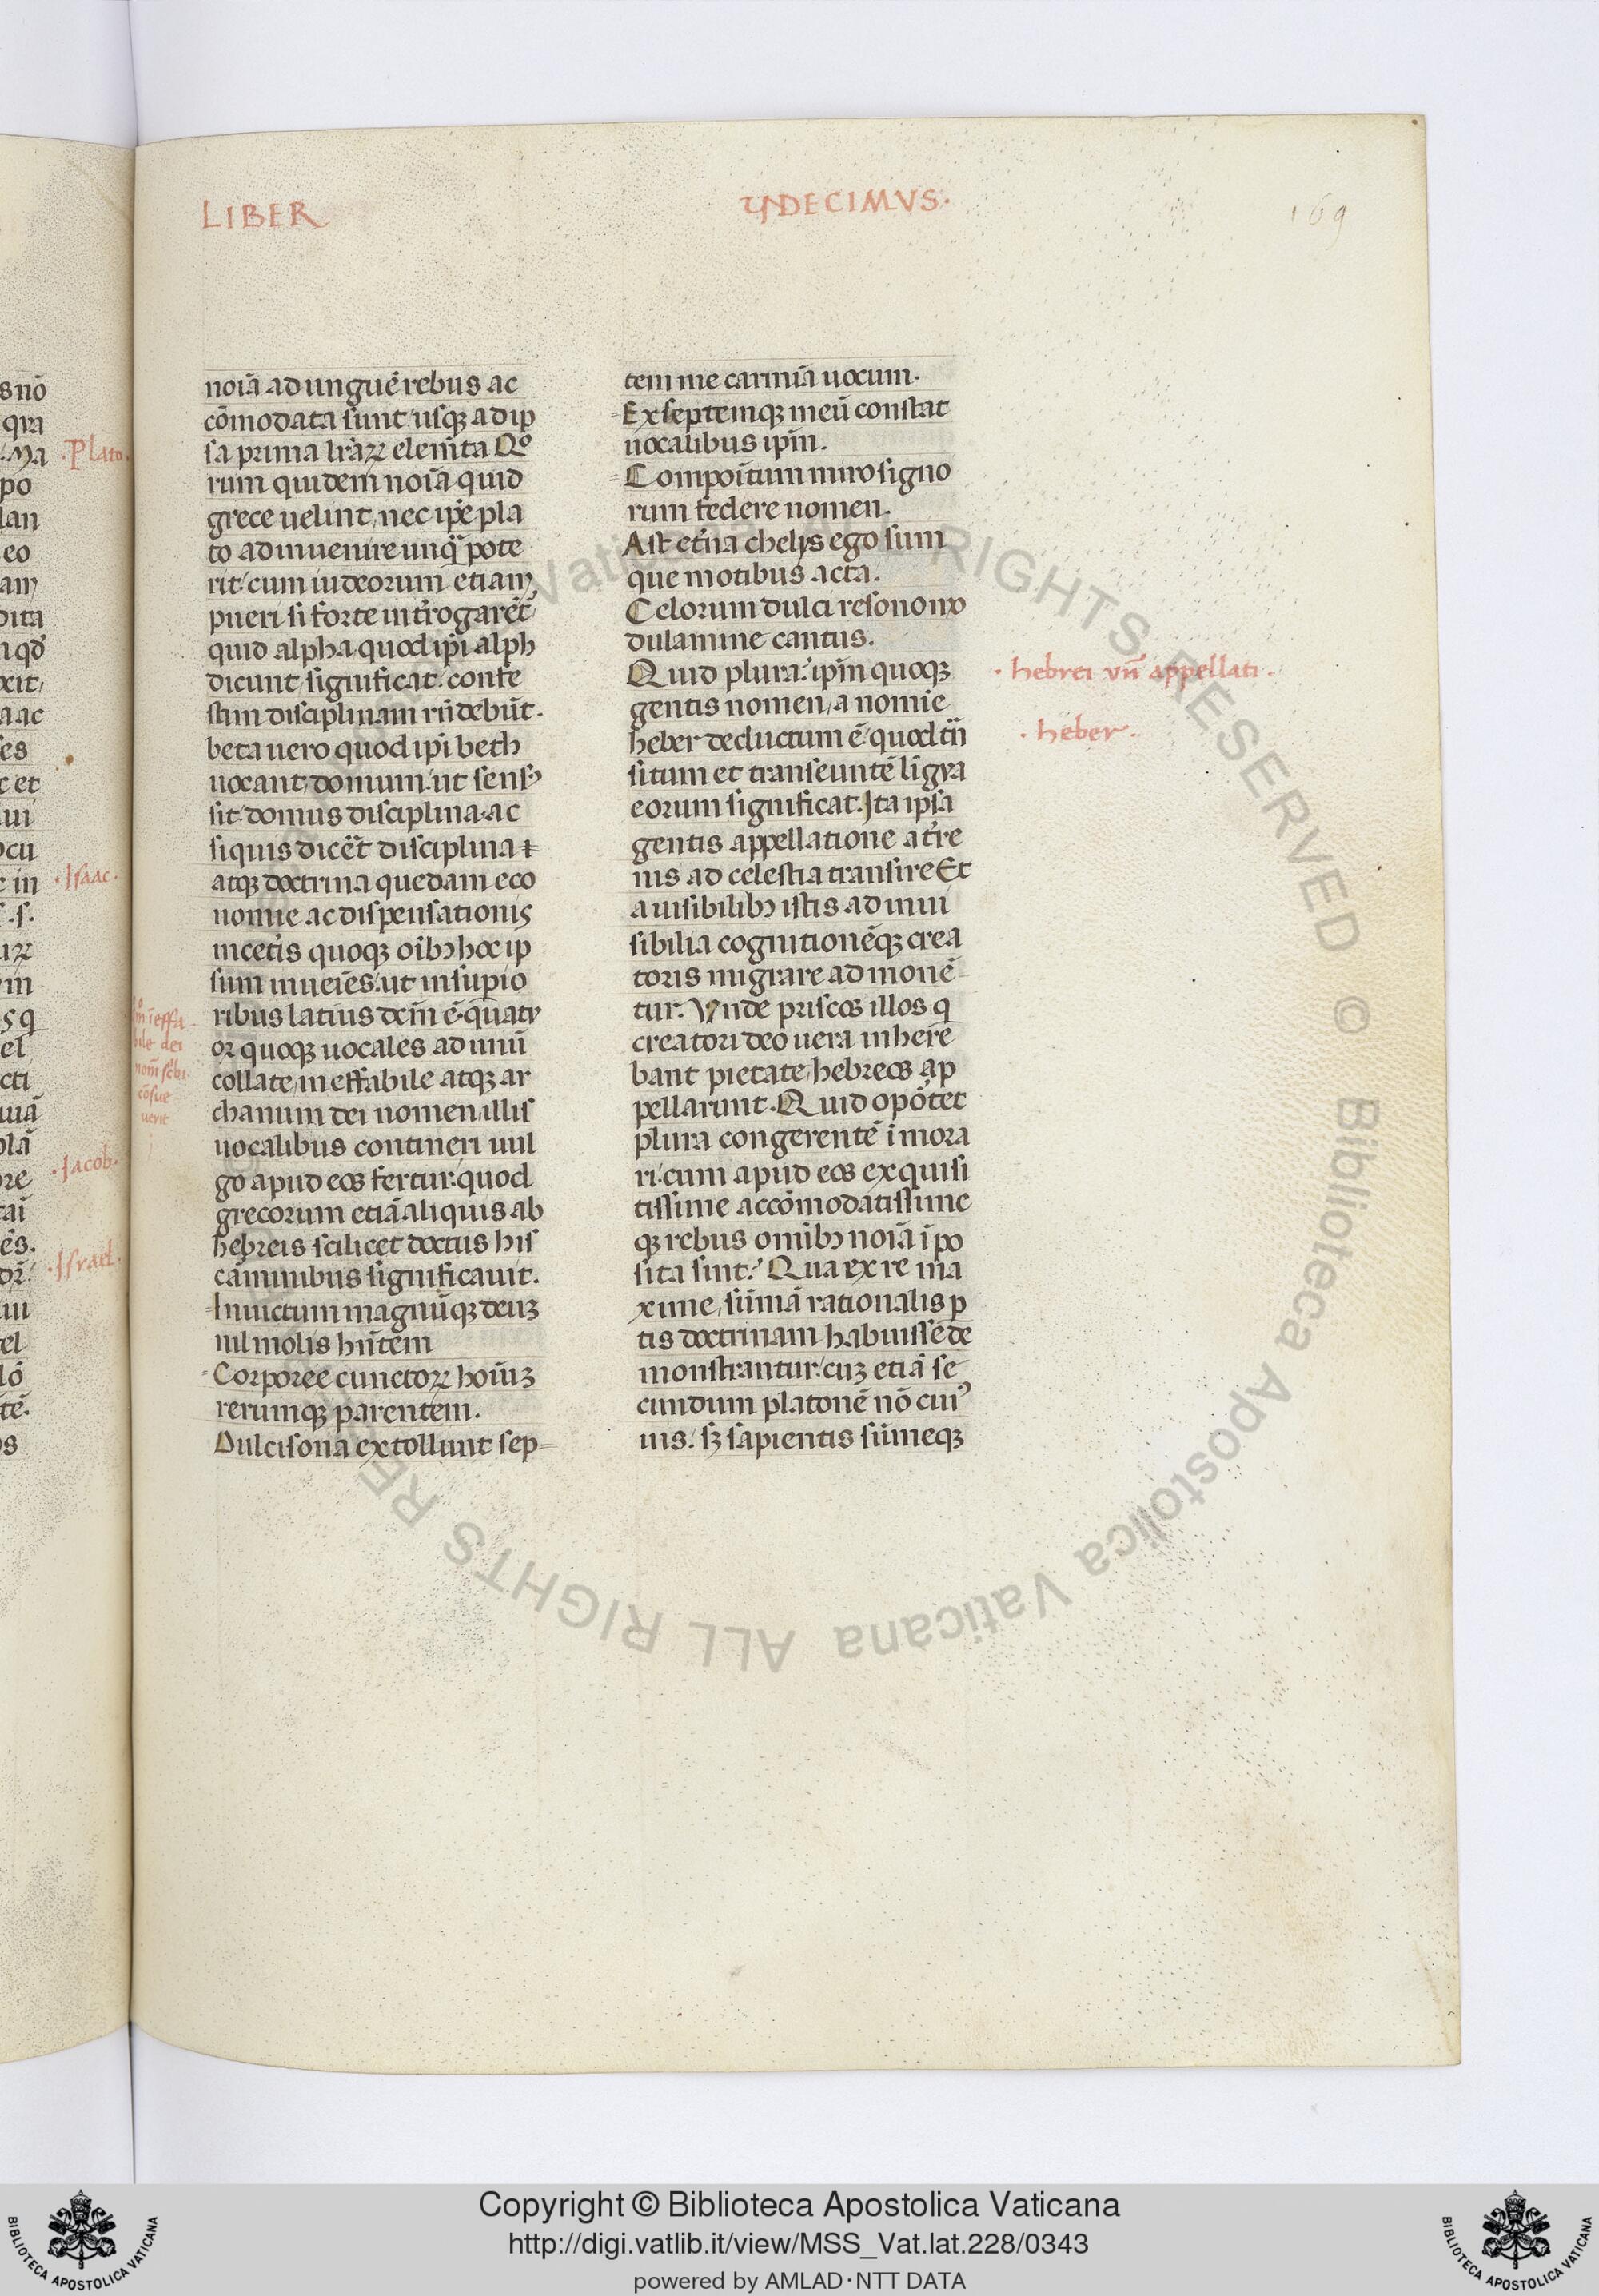 LIBER
VNDECIMVS·
169
noīa ad unguē rebus ac
cōmodata sunt usqꝫ ad ip
sa prima lr̄arꝝ elem̄ta Qo
rum quidem noīa quid
grece uelint, nec ip̄e pla
to adinuenire unq̄ pote
rit: cum iudeorum etiam
pueri si forte int̄rogarēt
quid alpha, quod ip̄i alph
dicunt significat: confe
stim disciplinam rn̄debūt.
beta uero quod ip̄i beth
uocant, domum: ut sensꝰ
sit: domus disciplina· ac
siquis dicēt disciplina
atqꝫ doctrina quedam eco
nomie ac dispensationis
in cet̄is quoqꝫ oībꝫ hoc ip
sum inueīes: ut in suꝑio
ribus latius dem̄ ē· q̄uatu
or quoqꝫ uocales ad unū
collate, ineffabile atqꝫ ar
chanum dei nomen, illis
uocalibus contineri uul
go apud eos fertur: quod
grecorum etiā aliquis ab
hebreis scilicet doctus his
cāminibus significauit.
Inuictum magnūqꝫ deuꝫ
nil molis hn̄tem
Corporee cunctorꝝ hoīuꝫ
rerumqꝫ parentem.
Dulcisona extollunt sep-
tem me carmīa uocum.
Ex septemqꝫ meū constat
uocalibus ip̄m.
Compoītum miro signo
rum federe nomen.
Ast et̄na chelys ego sum
que motibus acta.
Celorum dulci resono mo
dulamine cantus.
Quid plura? ip̄m quoqꝫ
gentis nomen, a nomīe
heber deductum ē: quod tn̄
situm et transeuntē līgua
eorum significat. Ita ipsa
gentis appellatione a t̄re
nis ad celestia transire Et
a uisibilibꝫ istis ad inui
sibilia cognitionēqꝫ crea
toris migrare admonē
tur. Vnde priscos illos q
creatori deo uera inhere
bant pietate, hebreos ap
pellarunt. Quid opōtet
plura congerentē īmora
ri: cum apud eos exquisi
tissime accōmodatissime
qꝫ rebus omībꝫ noīa īpo
sita sint? Qua ex re ma
xime, sūmā rationalis ꝑ
tis doctrinam habuisse de
monstrantur: cuꝫ etiā se
cundum platonē nō cuiꝰ
uis: sꝫ sapientis sūmeqꝫ
· hebrei vn̄ appellati ·
· heber ·
·Plato·
·Isaac·
·Jacob·
·Israel·
Copyright © Biblioteca Apostolica Vaticana
http://digi.vatlib.it/view/MSS_Vat.lat.228/0343
powered by AMLAD·NTT DATA
BIBLIOTECA APOSTOLICA VATICANA
BIBLIOTECA APOSTOLICA VATICANA
© Biblioteca Apostolica Vaticana ALL RIGHTS RESERVED